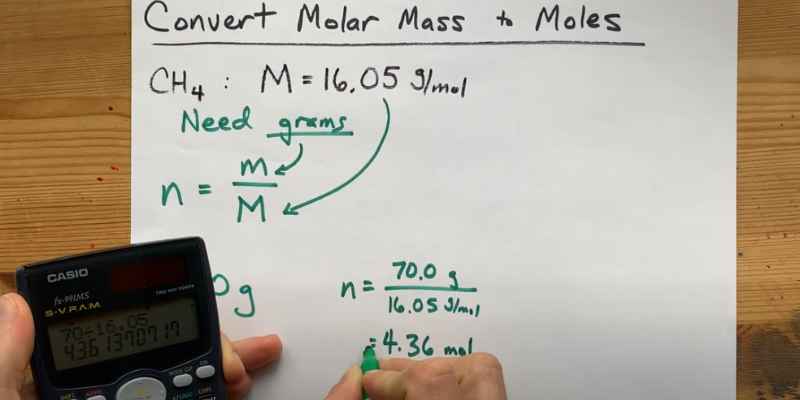 Convert Molar Mass to Moles
CH4 : M = 16.05 g/mol
Need grams
n = m/M
0 g
n = 70.0 g / 16.05 g/mol
= 4.36 mol
CASIO
S-V.P.A.M.
70÷16.05
4.361370717
ON